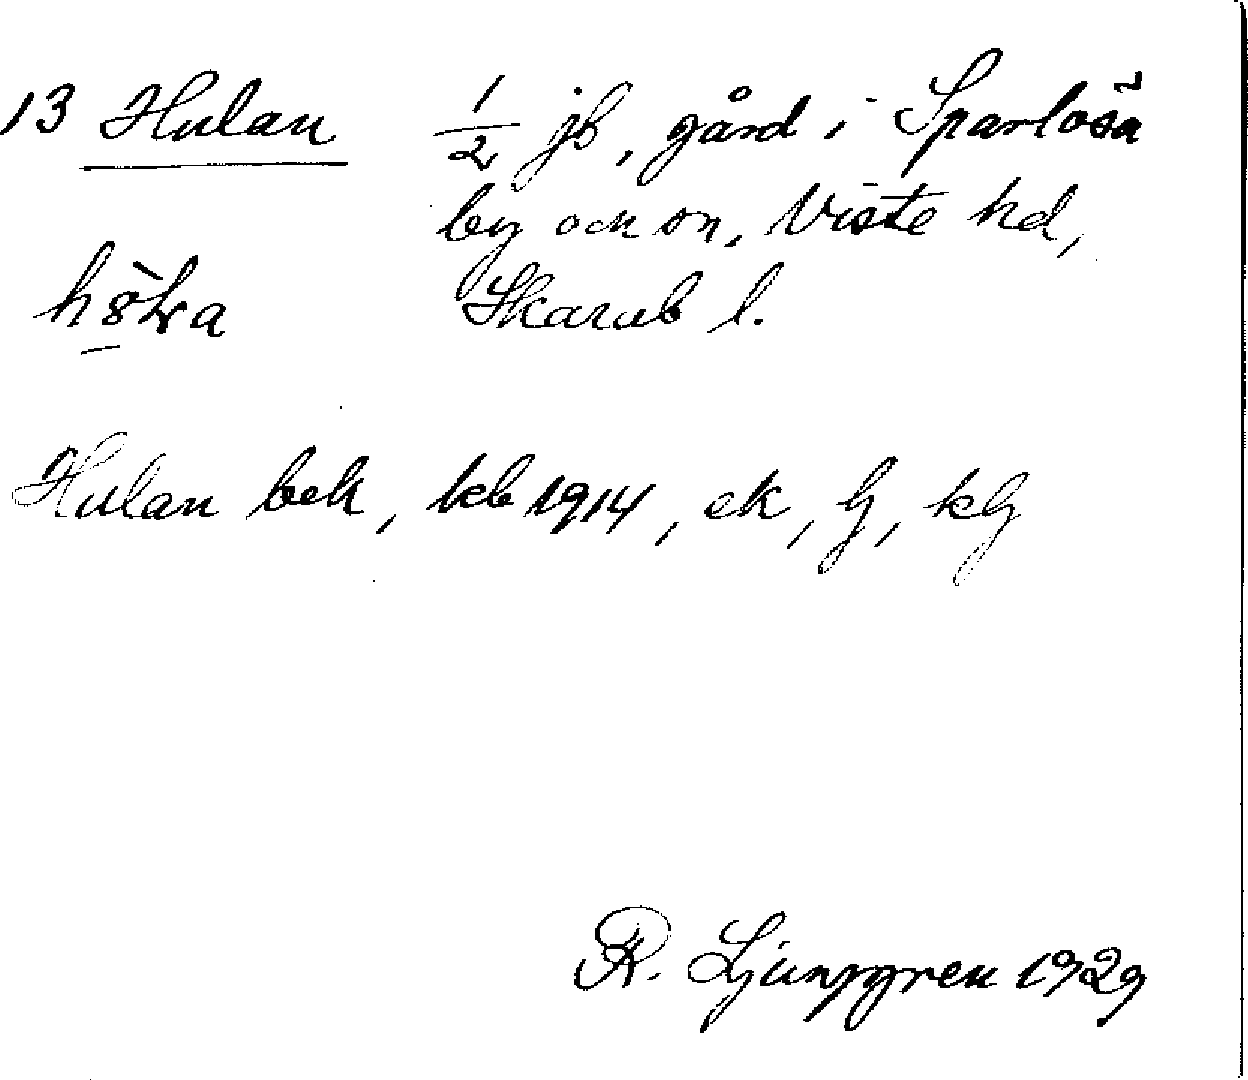 13 Hulan 1/2 jb, gård i Sparlösa
by och sn, Viste hd,
Skarab l.
Hulan bek, kb 1914, ek, G, kG
R. Ljunggren 1929